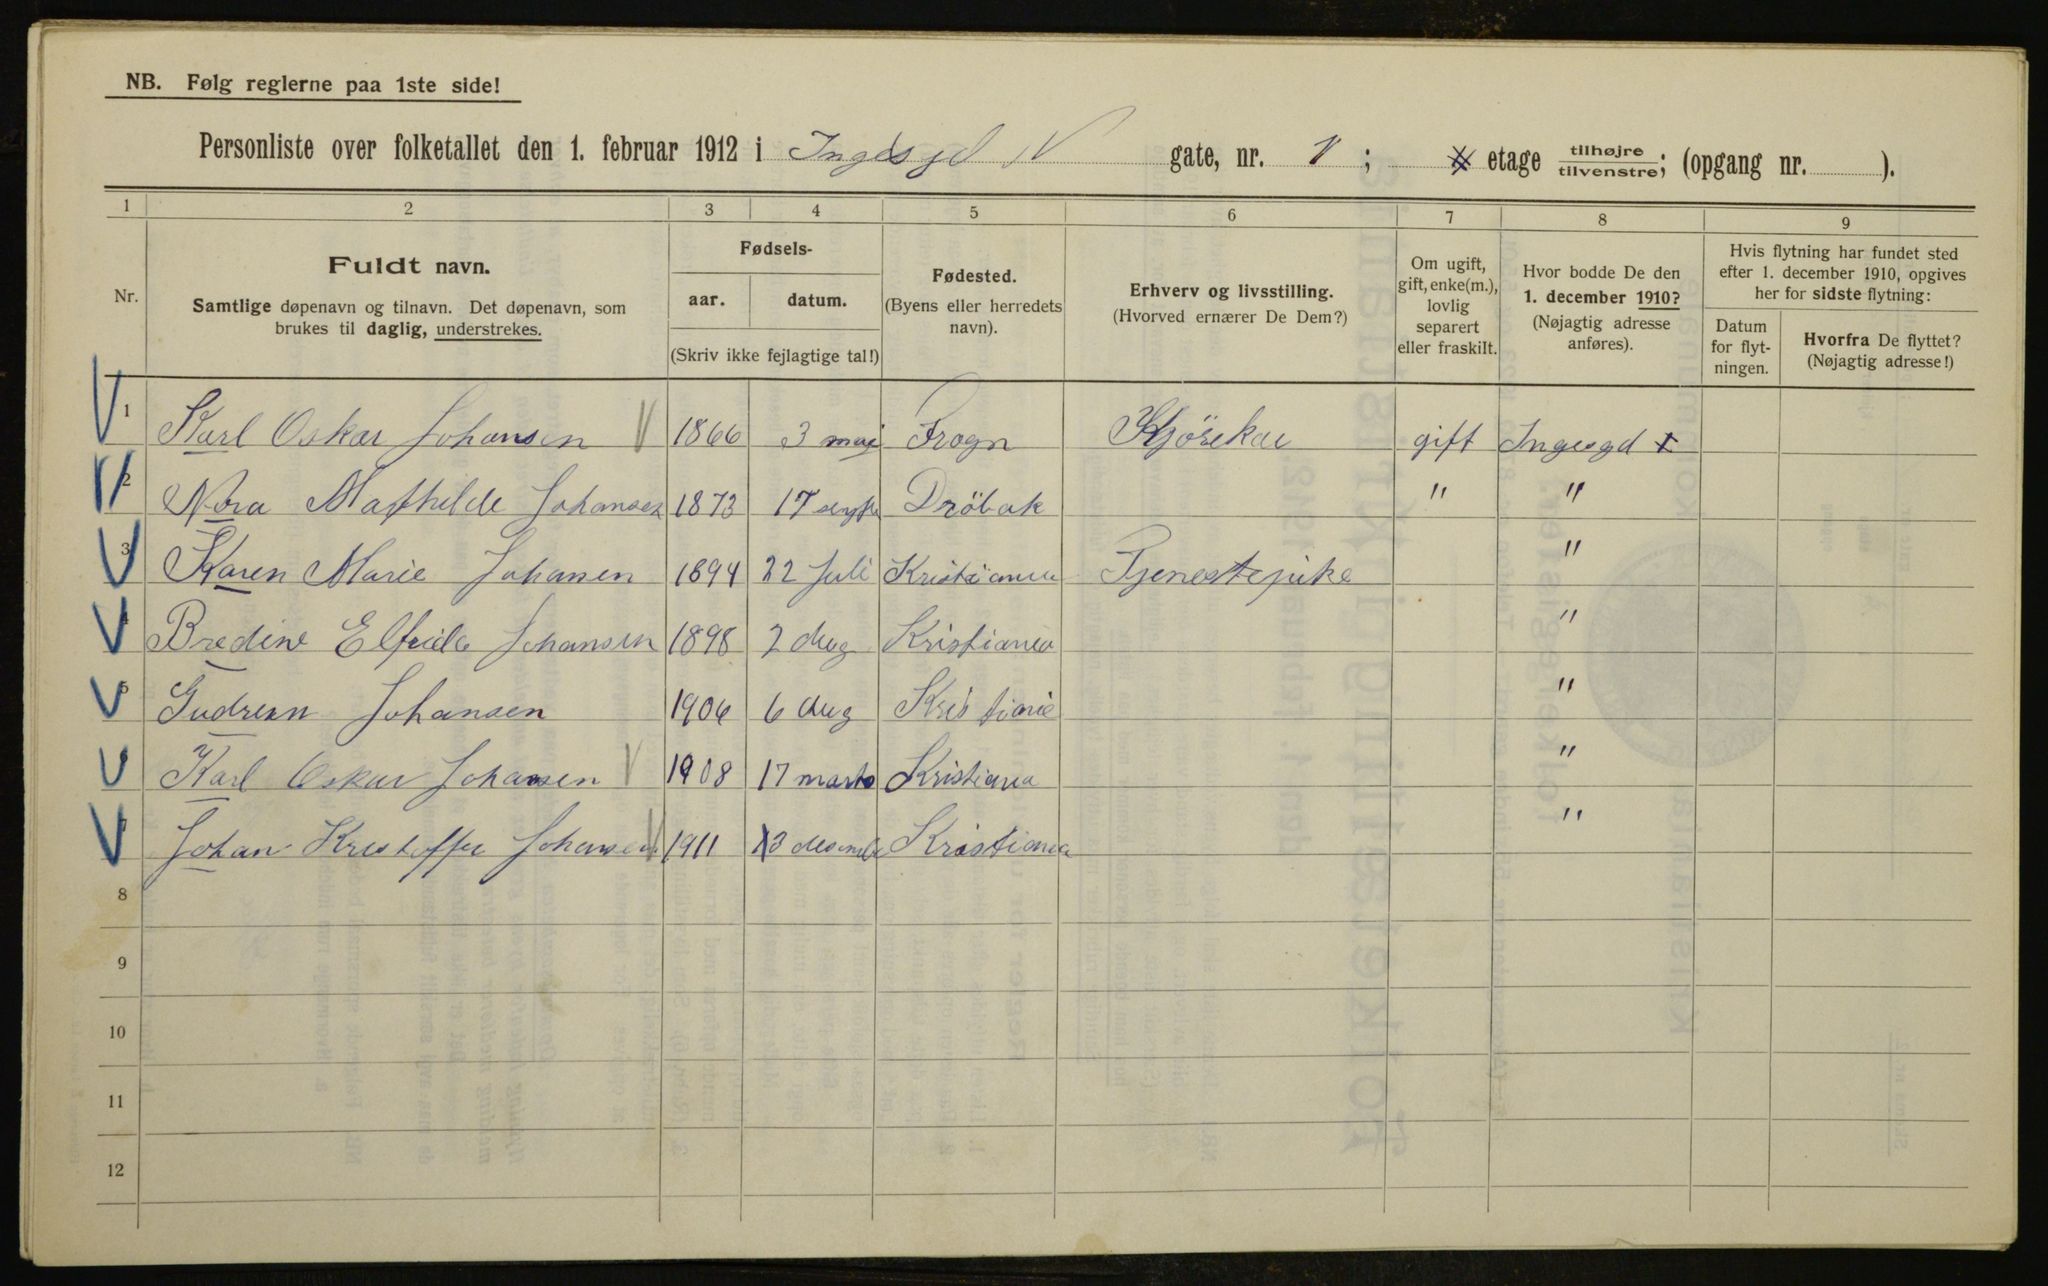 NB. Følg reglerne paa 1ste side!
Personliste over folketallet den 1. februar 1912 i gate, nr. ; etage tilhøjre/tilvenstre; (opgang nr. ).
1 2 3 4 5 6 7 8 9
Nr.
Fuldt navn.
Samtlige døpenavn og tilnavn. Det døpenavn, som
brukes til daglig, understrekes.
Fødsels-
aar. datum.
(Skriv ikke fejlagtige tal!)
Fødested.
(Byens eller herredets
navn).
Erhverv og livsstilling.
(Hvorved ernærer De Dem?)
Om ugift,
gift, enke(m.),
lovlig
separert
eller fraskilt.
Hvor bodde De den
1. december 1910?
(Nøjagtig adresse
anføres).
Hvis flytning har fundet sted
efter 1. december 1910, opgives
her for sidste flytning:
Datum
for flyt-
ningen.
Hvorfra De flyttet?
(Nøjagtig adresse!)
1 Karl Oskar Johansen 1866 3 mai Frogn Kjörekar gift Ingesgd 1
2 Nora Mathilde Johansen 1873 17 Dröbak " "
3 Karen Marie Johansen 1894 22 Juli Kristiania Tjenestepike "
4 Bredine Elfrida Johansen 1898 2 Aug Kristiania "
5 Gudrun Johansen 1906 6 Aug Kristiania "
6 Karl Oskar Johansen 1908 17 marts Kristiana "
7 Johan Kristoffer Johansen 1911 Kristiania "
8
9
10
11
12